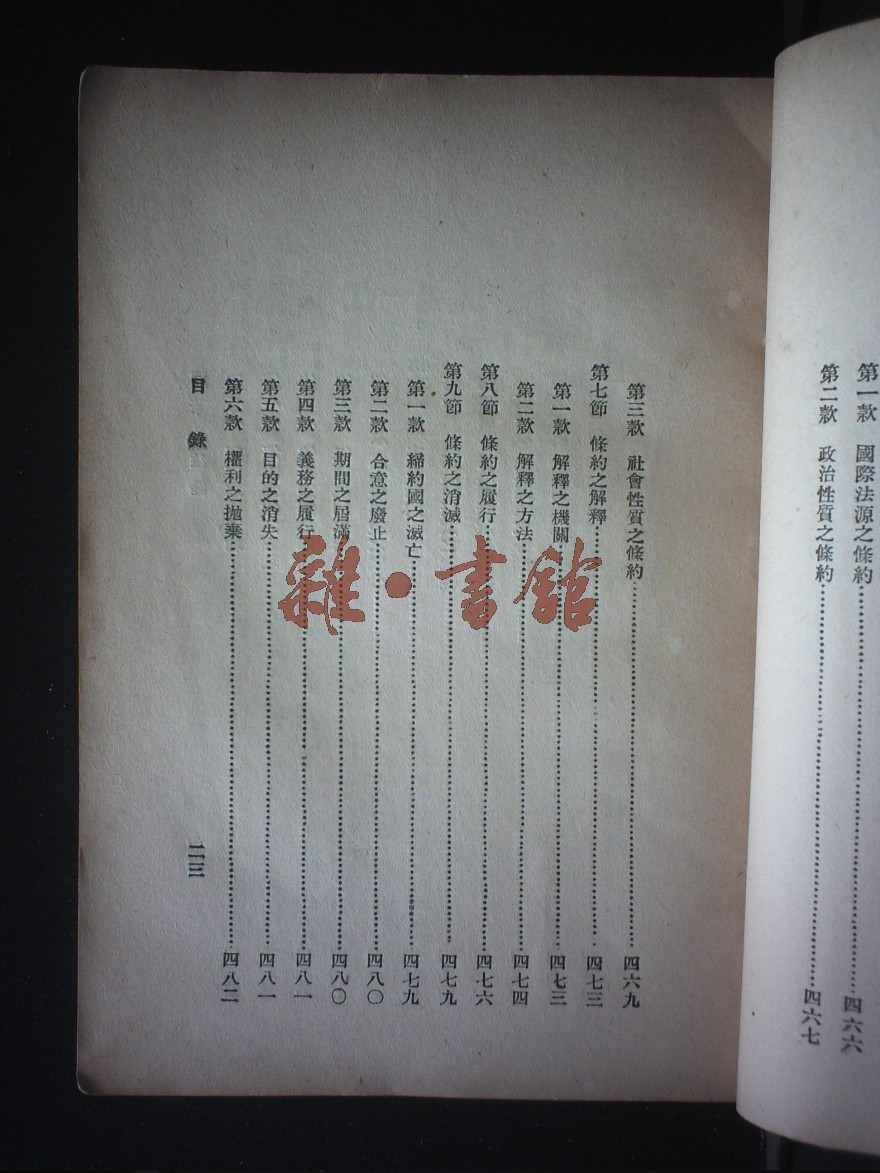 第一款 國際法源之條約……四六六
第二款 政治性質之條約……四六七
第三款 社會性質之條約……四六九
第七節 條約之解釋……四七三
第一款 解釋之機關……四七三
第二款 解釋之方法……四七四
第八節 條約之履行……四七六
第九節 條約之消滅……四七九
第一款 締約國之滅亡……四七九
第二款 合意之廢止……四八〇
第三款 期間之屆滿……四八〇
第四款 義務之履行……四八一
第五款 目的之消失……四八一
第六款 權利之拋棄……四八二
目錄 二三
雜·書館